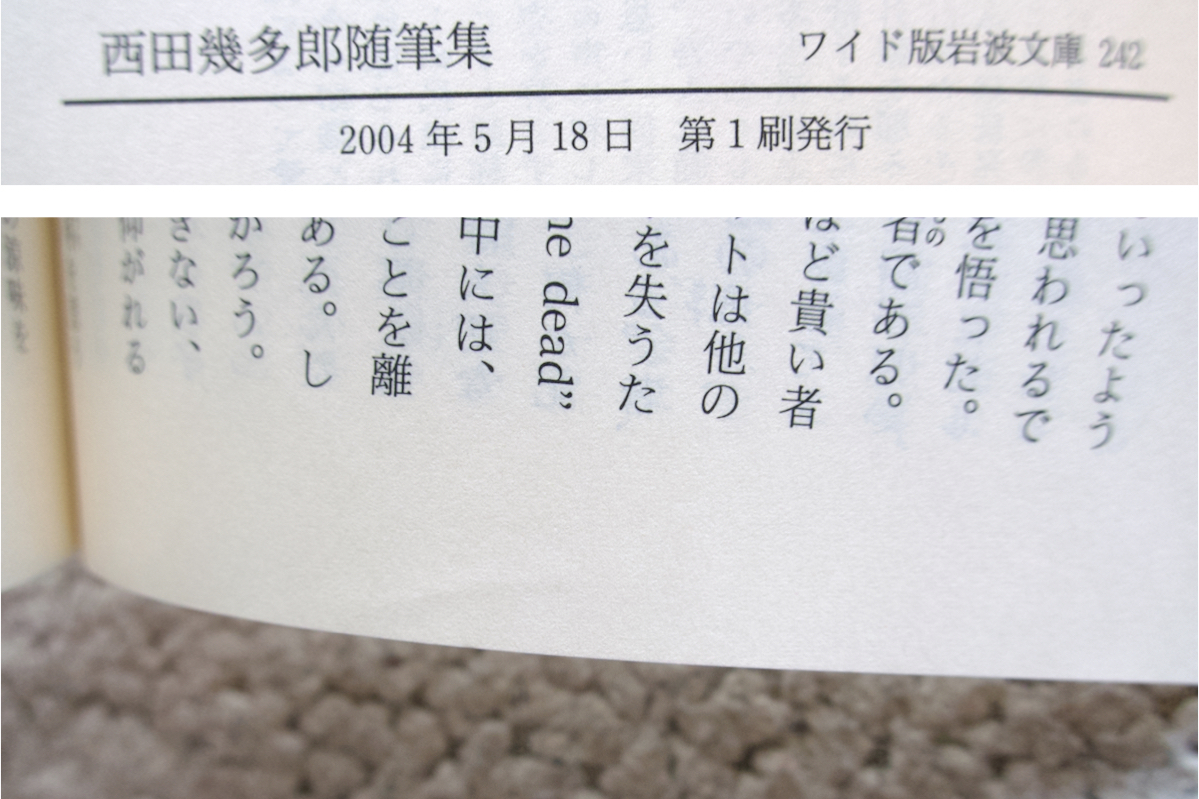 西田幾多郎随筆集 ワイド版岩波文庫 242
2004年5月18日 第1刷発行
いったよう
思われるで
を悟った。
者であるもの。
ほど貴い者
トは他の
を失うた
he dead”
中には、
ことを離
ある。し
かろう。
さない、
仰がれる